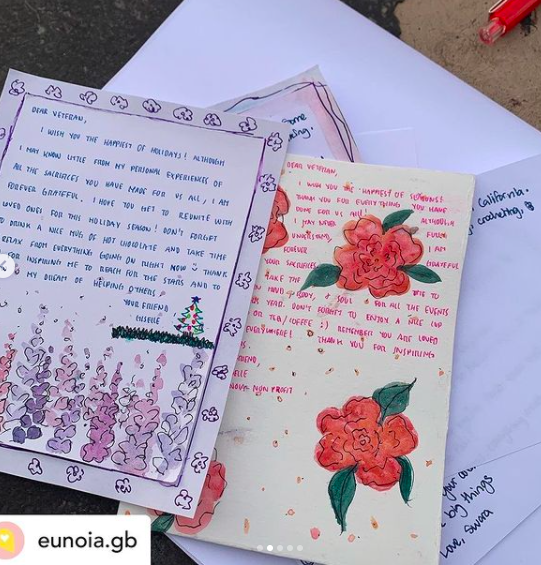 DEAR VETERAN,
I WISH YOU THE HAPPIEST OF HOLIDAYS! ALTHOUGH
I MAY KNOW LITTLE FROM MY PERSONAL EXPERIENCES OF
ALL THE SACRIFICES YOU HAVE MADE FOR US ALL, I AM
FOREVER GRATEFUL. I HOPE YOU GET TO REUNITE WITH
LOVED ONES FOR THIS HOLIDAY SEASON! DON'T FORGET
TO DRINK A NICE MUG OF HOT CHOCOLATE AND TAKE TIME
RELAX FROM EVERYTHING GOING ON RIGHT NOW :) THANK
FOR INSPIRING ME TO REACH FOR THE STARS AND TO
MY DREAM OF HELPING OTHERS.
YOUR FRIEND,
GISELLE
DEAR VETERAN,
I WISH YOU THE HAPPIEST OF
THANK YOU FOR EVERYTHING YOU HAVE
DONE FOR US ALL!
ALTHOUGH
I MAY NEVER
FULLY
UNDERSTAND,
I AM
FOREVER
GRATEFUL
YOUR SACRIFICES
TAKE THE
TIME TO
BODY, & SOUL FOR ALL THE EVENTS
YEAR. DON'T FORGET TO ENJOY A NICE CUP
OR TEA/COFFEE :) REMEMBER YOU ARE LOVED
THANK YOU FOR INSPIRING
NON PROFIT
some
California.
crocheting.
your
big things
Love,
eunoia.gb